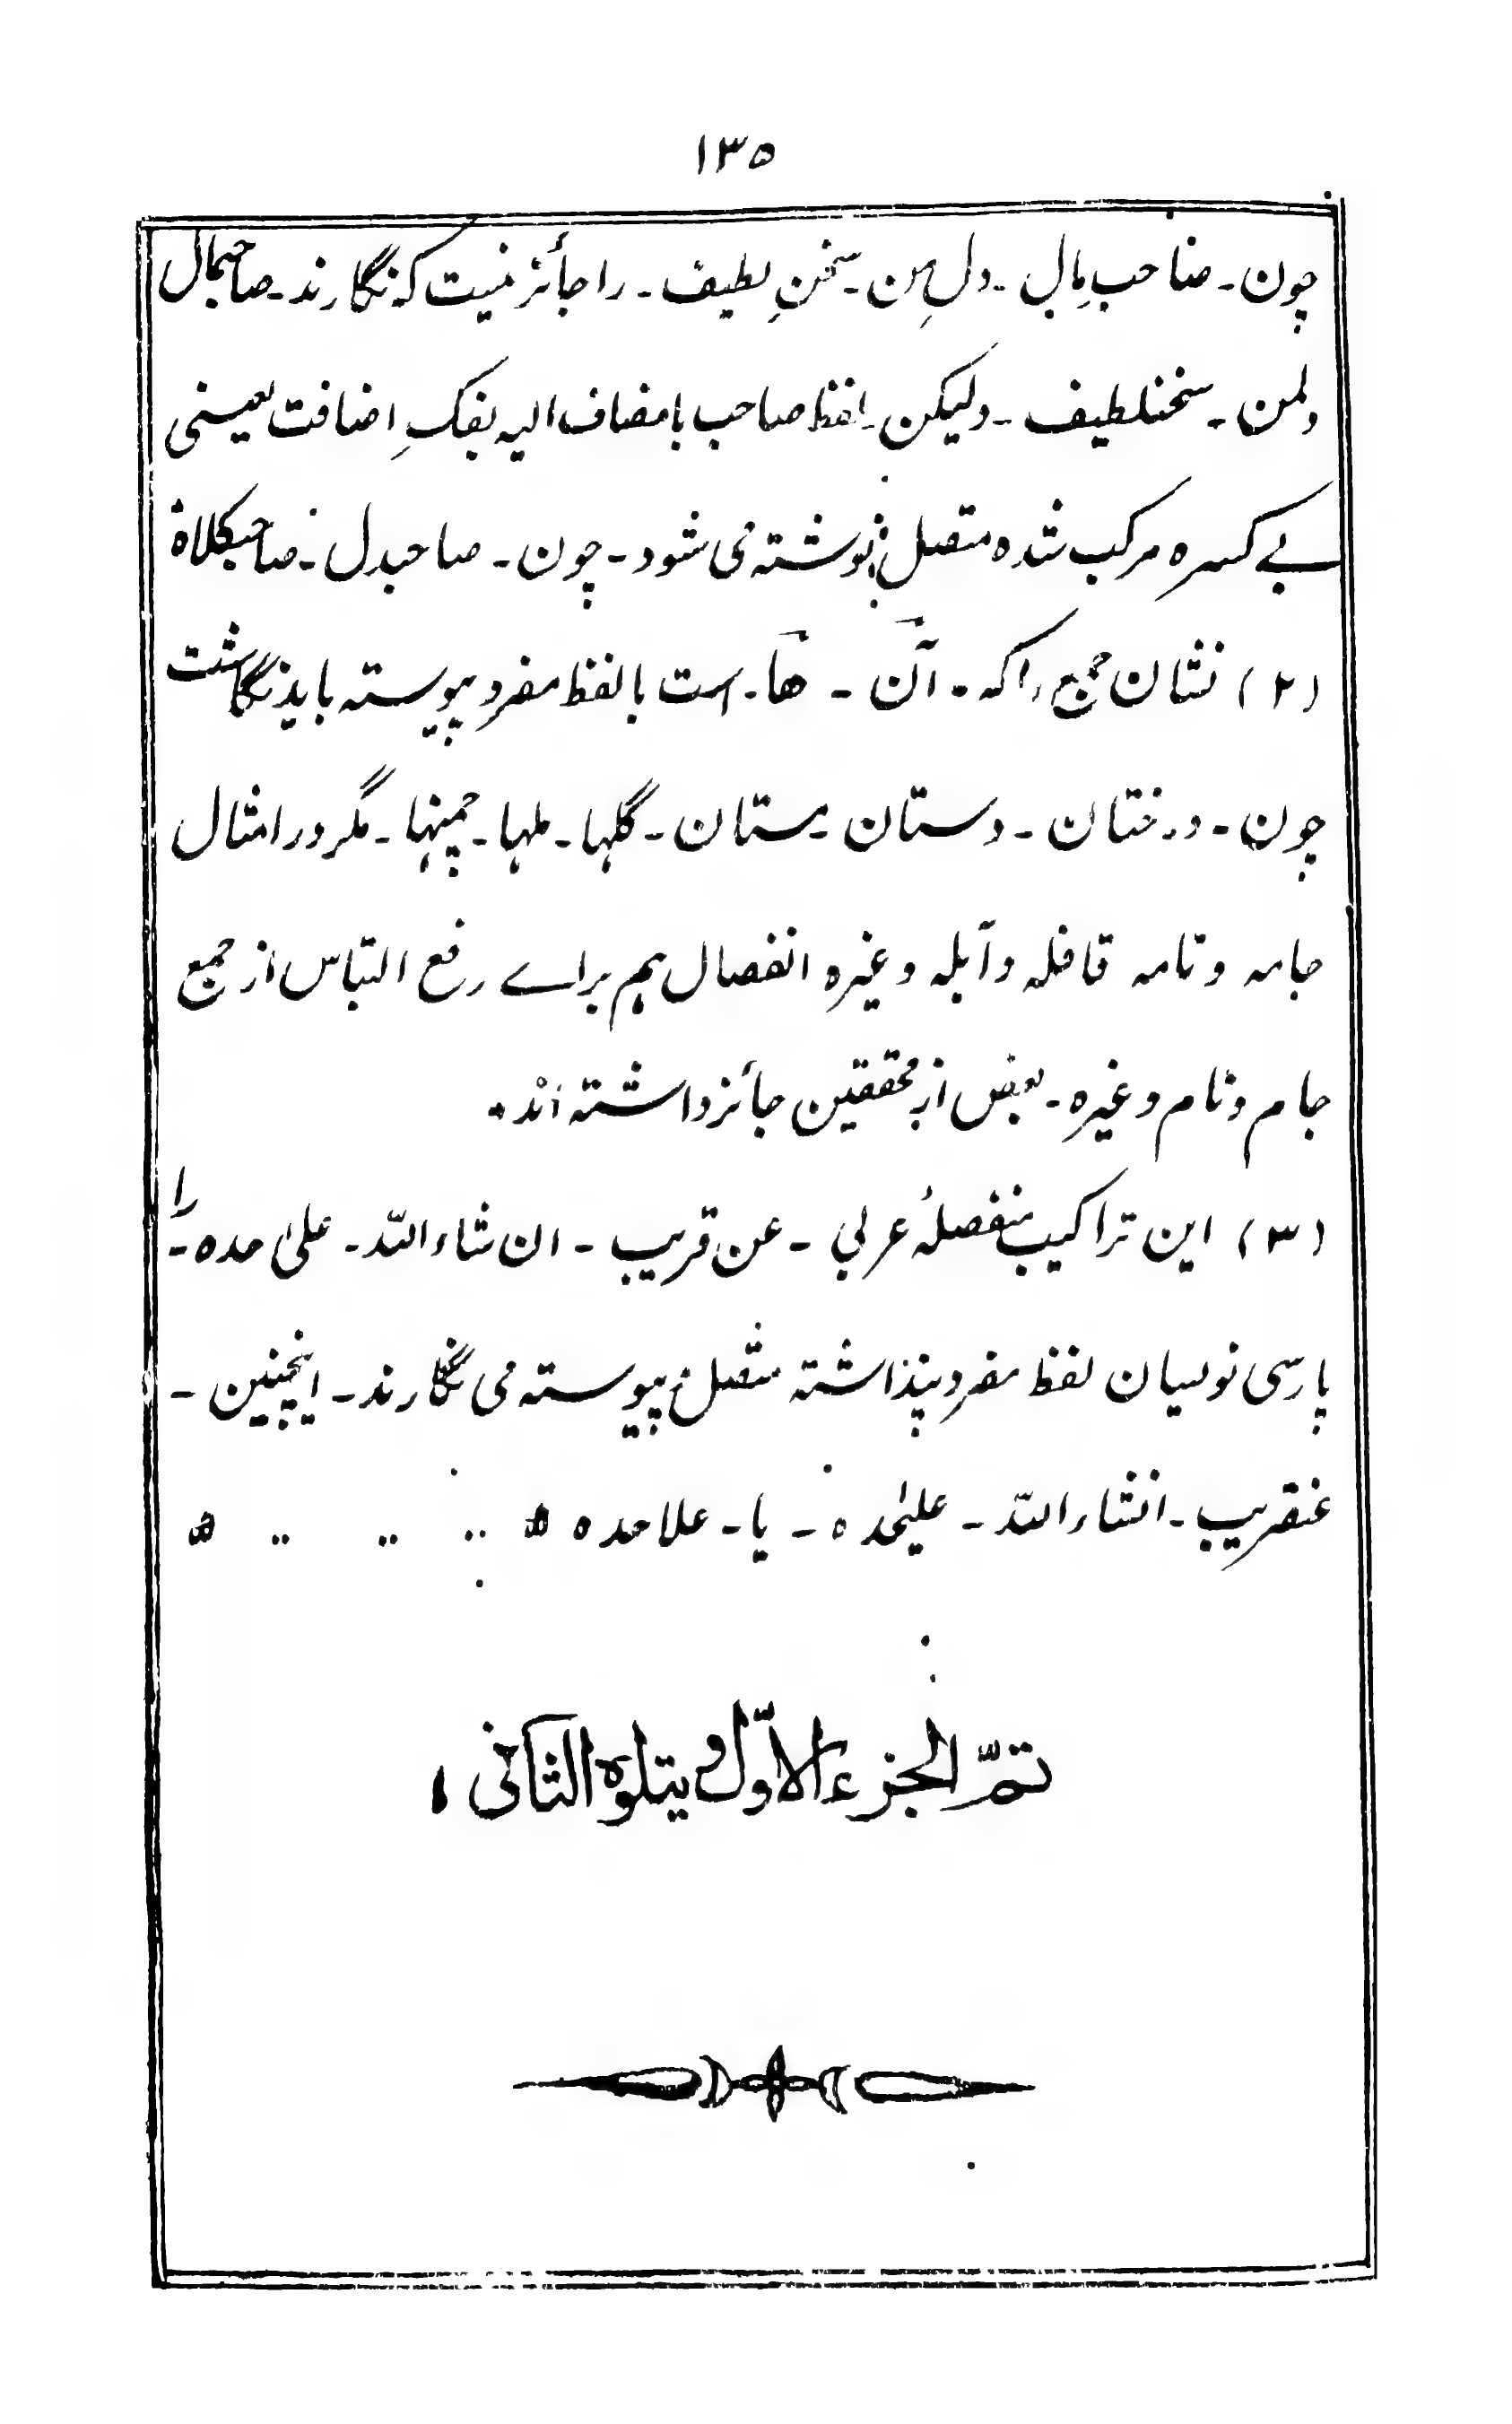 ۱۳۵
چون۔ صاحبِ مال۔ دلِ من۔ سخنِ لطیف۔ را جائز نیست کہ نگارند۔ صاحبمال
دلمن۔ سخنلطیف۔ ولیکن۔ لفظ صاحب با مضاف الیہ بفکِ اضافت یعنی
بے کسرہ مرکب شدہ متصل نوشتہ می شود۔ چون۔ صاحبدل۔ صاحبکلاہ
(۲) نشان جمع را کہ۔ آن۔ ھا۔ است با لفظ مفرد پیوستہ باید نگاشت
چون۔ درختان۔ دستان۔ مستان۔ گلہا۔ ملہا۔ چمنہا۔ مگر در امثال
جامہ و نامہ قافلہ و آبلہ وغیرہ انفصال ہم براے رفع التباس از جمع
جام و نام وغیرہ۔ بعض از محققین جائز داشتہ اند۔
(۳) این تراکیب منفصلۂ عربی۔ عن قریب۔ ان شاء اللّٰہ۔ علیٰ حدہ۔ را
پارسی نویسان لفظ مفرد پنداشتہ متصل و پیوستہ می نگارند۔ اینچنین۔
عنقریب۔ انشاء اللّٰہ۔ علیٰحدہ۔ یا۔ علاحدہ
تمّ الجزء الاوّل و یتلوہ الثانی